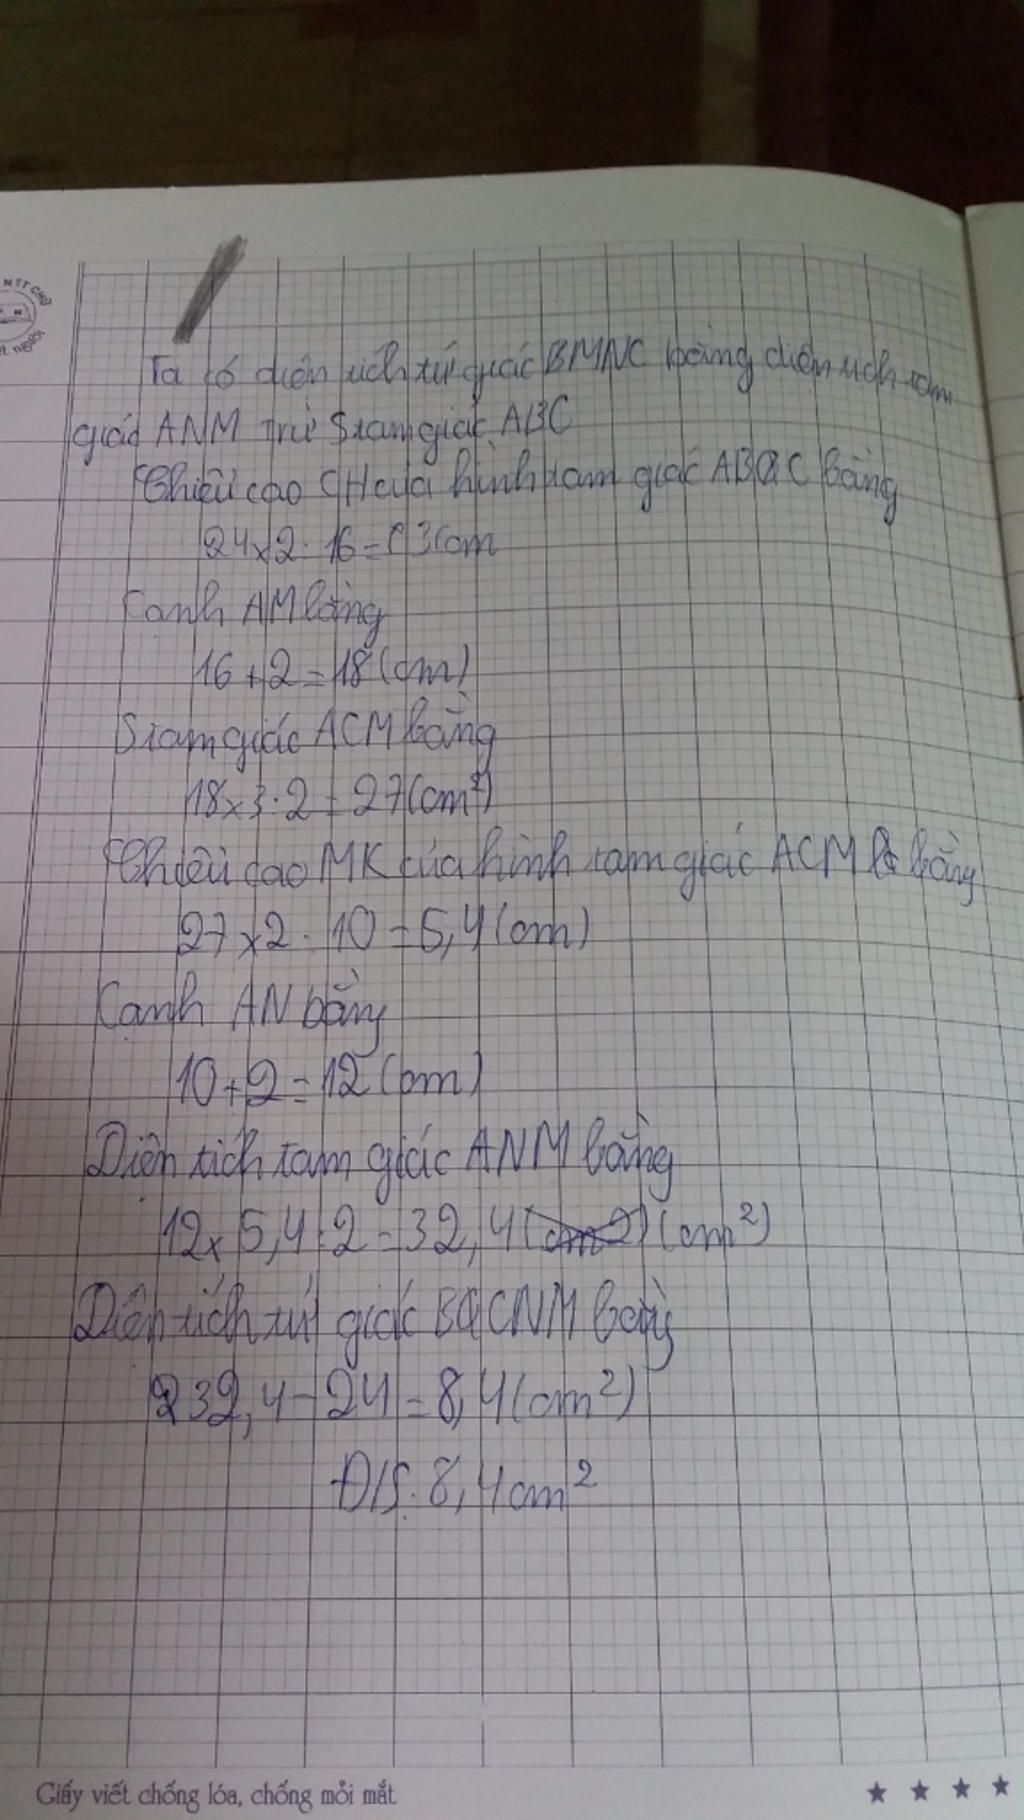 Ta có diện tích tứ giác BMNC bằng diện tích tam
giác ANM trừ S tam giác ABC
Chiều cao CH của hình tam giác ABC bằng
24 x 2 : 16 = 3 (cm
Cạnh AM bằng
16 + 2 = 18 (cm)
S tam giác ACM bằng
18 x 3 : 2 = 27 (cm²)
Chiều cao MK của hình tam giác ACM bằng
27 x 2 : 10 = 5,4 (cm)
Cạnh AN bằng
10 + 2 = 12 (cm)
Diện tích tam giác ANM bằng
12 x 5,4 : 2 = 32,4 (cm²)
Diện tích tứ giác BCNM bằng
32,4 - 24 = 8,4 (cm²)
Đ/S: 8,4 cm²
Giấy viết chống lóa, chống mỏi mắt